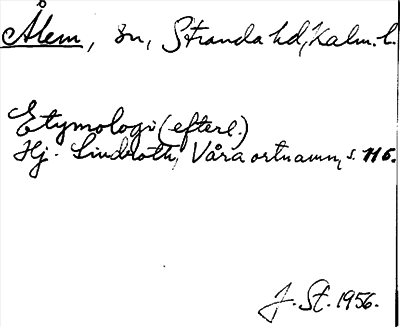 Ålem, sn, Stranda hd, Kalm. l.
Etymologi (efterl.)
Hj. Lindroth, Våra ortnamn, s. 116.
J. St. 1956.